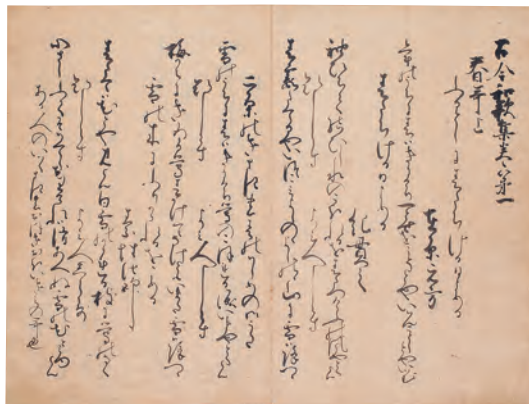 古今和歌集巻第一
春哥上
ふるとしに春たちける日よめる
在原元方
年の内に春はきにけり一とせをこそとやいはんことしとやいはむ
春たちける日よめる
紀貫之
袖ひちてむすひし水のこほれるを春立けふの風やとくらん
題しらす　よみ人しらす
春霞たてるやいつこみよしのゝよしのの山に雪はふりつゝ
二条のきさきの春のはしめの御うた
雪の内に春はきにけり鶯のこほれる涙いまやとくらん
題しらす　よみ人しらす
梅かえにきゐる鶯春かけてなけともいまた雪はふりつゝ
雪の木にふりかゝれるをよめる
素性法師
春たては花とや見らん白雪のかゝれる枝に鶯のなく
題しらす　よみ人しらす
心さしふかくそめてしおりけれはきえあへぬ雪の花とみゆらん
ある人のいはくさきのおほきおほいまうちきみの哥也